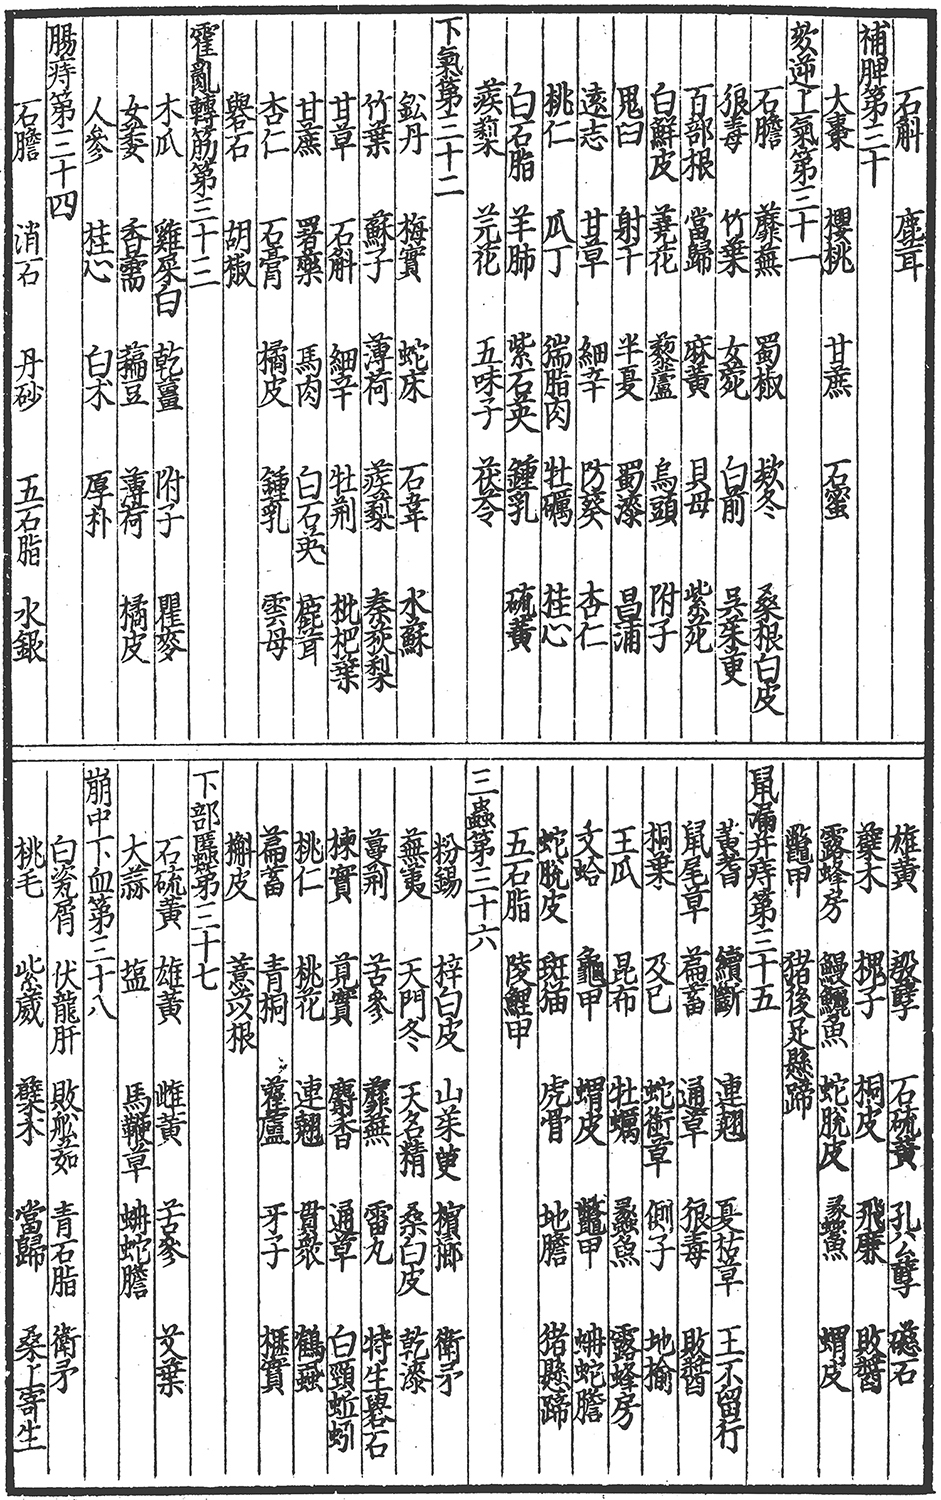 石斛 鹿茸
補脾第三十
大棗 櫻桃 甘蔗 石蜜
欬逆上氣第三十一
石膽 蘼蕪 蜀椒 欵冬 桑根白皮
狼毒 竹葉 女菀 白前 吳茱萸
百部根 當歸 麻黃 貝母 紫菀
白鮮皮 蕘花 藜蘆 烏頭 附子
鬼臼 射干 半夏 蜀漆 昌蒲
遠志 甘草 細辛 防葵 杏仁
桃仁 瓜丁 猯脂肉 牡礪 桂心
白石脂 羊肺 紫石英 鍾乳 硫黃
蒺蔾 芫花 五味子 茯苓
下氣第三十二
鈆丹 梅實 蛇床 石韋 水蘇
竹葉 蘇子 薄荷 蒺蔾 秦荻梨
甘草 石斛 細辛 牡荊 枇杷葉
甘蔗 署藥 馬肉 白石英 鹿茸
杏仁 石膏 橘皮 鍾乳 雲母
礜石 胡椒
霍亂轉筋第三十三
木瓜 雞屎白 乾薑 附子 瞿麥
女萎 香薷 藊豆 薄荷 橘皮
人參 桂心 白术 厚朴
腸痔第三十四
石膽 消石 丹砂 五石脂 水銀
雄黃 殷孽 石硫黃 孔公孽 磁石
蘗木 榔子 桐皮 飛廉 敗醬
露蜂房 鰻鱺魚 蛇脫皮 蠡魚 蝟皮
鼈甲 猪後足懸蹄
鼠漏并痔第三十五
黃耆 續斷 連翹 夏枯草 王不留行
鼠尾草 萹蓄 通草 狼毒 敗醬
桐葉 及已 蛇衘草 側子 地榆
王瓜 昆布 牡蠣 蠡魚 露蜂房
文蛤 龜甲 蝟皮 鼈甲 蚺蛇膽
蛇脫皮 斑猫 虎骨 地膽 猪懸蹄
五石脂 陵鯉甲
三蟲第三十六
粉錫 梓白皮 山茱萸 檳榔 衛矛
蕪荑 天門冬 天名精 桑白皮 乾漆
蔓荊 苦參 蘼蕪 雷丸 特生礜石
楝實 莧實 麝香 通草 白頸蚯蚓
桃仁 桃花 連翹 貫衆 鶴蝨
萹蓄 青桐 藋蘆 牙子 榧實
槲皮 薏苡根
下部䘌第三十七
石硫黃 雄黃 雌黃 苦參 艾葉
大蒜 塩 馬鞭草 蚺蛇膽
崩中下血第三十八
白瓷屑 伏龍肝 敗舩茹 青石脂 衛矛
桃毛 紫葳 蘗木 當歸 桑上寄生